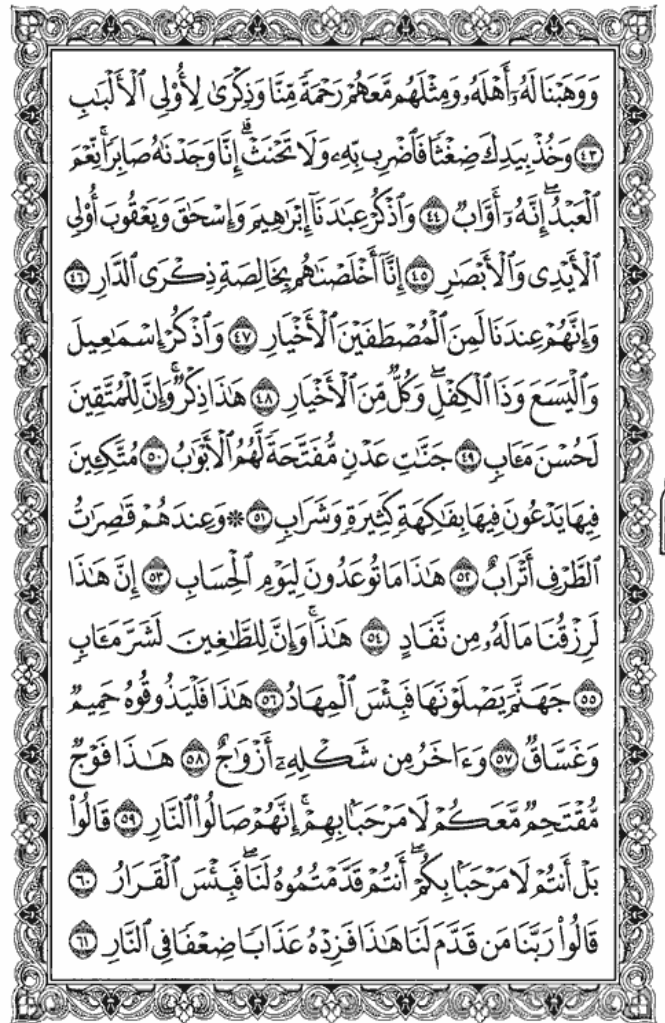 وَوَهَبْنَا لَهُۥٓ أَهْلَهُۥ وَمِثْلَهُم مَّعَهُمْ رَحْمَةً مِّنَّا وَذِكْرَىٰ لِأُو۟لِى ٱلْأَلْبَٰبِ
٤٣ وَخُذْ بِيَدِكَ ضِغْثًا فَٱضْرِب بِّهِۦ وَلَا تَحْنَثْ ۗ إِنَّا وَجَدْنَٰهُ صَابِرًا ۚ نِّعْمَ
ٱلْعَبْدُ ۖ إِنَّهُۥٓ أَوَّابٌ ٤٤ وَٱذْكُرْ عِبَٰدَنَآ إِبْرَٰهِيمَ وَإِسْحَٰقَ وَيَعْقُوبَ أُو۟لِى
ٱلْأَيْدِى وَٱلْأَبْصَٰرِ ٤٥ إِنَّآ أَخْلَصْنَٰهُم بِخَالِصَةٍ ذِكْرَى ٱلدَّارِ ٤٦
وَإِنَّهُمْ عِندَنَا لَمِنَ ٱلْمُصْطَفَيْنَ ٱلْأَخْيَارِ ٤٧ وَٱذْكُرْ إِسْمَٰعِيلَ
وَٱلْيَسَعَ وَذَا ٱلْكِفْلِ ۖ وَكُلٌّ مِّنَ ٱلْأَخْيَارِ ٤٨ هَٰذَا ذِكْرٌ ۚ وَإِنَّ لِلْمُتَّقِينَ
لَحُسْنَ مَـَٔابٍ ٤٩ جَنَّٰتِ عَدْنٍ مُّفَتَّحَةً لَّهُمُ ٱلْأَبْوَٰبُ ٥٠ مُتَّكِـِٔينَ
فِيهَا يَدْعُونَ فِيهَا بِفَٰكِهَةٍ كَثِيرَةٍ وَشَرَابٍ ٥١ ۞ وَعِندَهُمْ قَٰصِرَٰتُ
ٱلطَّرْفِ أَتْرَابٌ ٥٢ هَٰذَا مَا تُوعَدُونَ لِيَوْمِ ٱلْحِسَابِ ٥٣ إِنَّ هَٰذَا
لَرِزْقُنَا مَا لَهُۥ مِن نَّفَادٍ ٥٤ هَٰذَا ۚ وَإِنَّ لِلطَّٰغِينَ لَشَرَّ مَـَٔابٍ
٥٥ جَهَنَّمَ يَصْلَوْنَهَا فَبِئْسَ ٱلْمِهَادُ ٥٦ هَٰذَا فَلْيَذُوقُوهُ حَمِيمٌ
وَغَسَّاقٌ ٥٧ وَءَاخَرُ مِن شَكْلِهِۦٓ أَزْوَٰجٌ ٥٨ هَٰذَا فَوْجٌ
مُّقْتَحِمٌ مَّعَكُمْ ۖ لَا مَرْحَبًۢا بِهِمْ ۚ إِنَّهُمْ صَالُوا۟ ٱلنَّارِ ٥٩ قَالُوا۟
بَلْ أَنتُمْ لَا مَرْحَبًۢا بِكُمْ ۖ أَنتُمْ قَدَّمْتُمُوهُ لَنَا ۖ فَبِئْسَ ٱلْقَرَارُ ٦٠
قَالُوا۟ رَبَّنَا مَن قَدَّمَ لَنَا هَٰذَا فَزِدْهُ عَذَابًا ضِعْفًا فِى ٱلنَّارِ ٦١